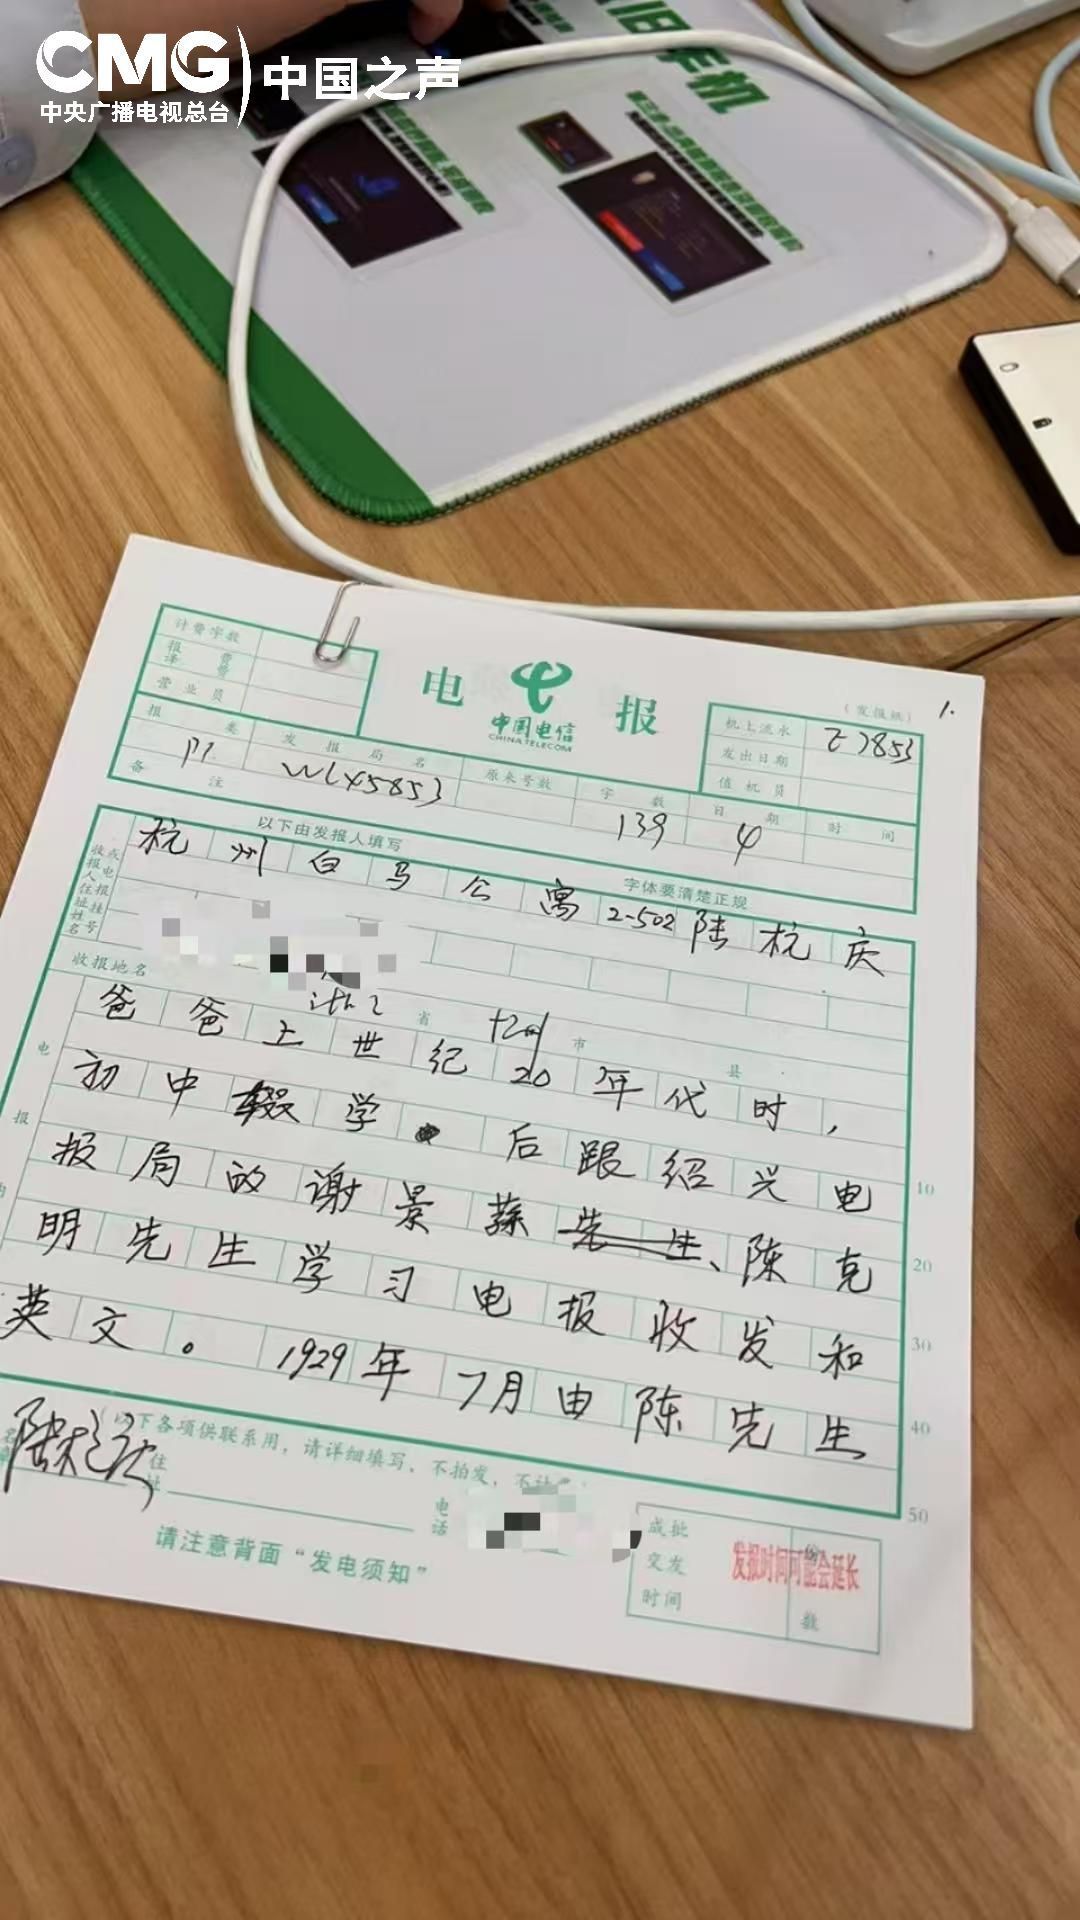 CMG 中国之声
中央广播电视总台
旧手机
计费字数
报费
译费
营业员
电报
中国电信
CHINA TELECOM
(发报纸) 1.
机上流水
发出日期
值机员
报类 发报局名 原来号数 字数 日期 时间
139 4
备注
以下由发报人填写 字体要清楚正规
收报人住址姓名 或电报挂号
杭州白马公寓2-502陆杭庆
收报地名 省 市 县
爸爸上世纪20年代时,
初中辍学 后跟绍兴电 10
报局的谢景荪先生、陈克 20
明先生学习电报收发和 30
英文。1929年7月由陈先生 40
50
(以下各项供联系用,请详细填写,不拍发,不计费)
住址
电话
请注意背面“发电须知”
成批交发时间
份数
发报时间可能会延长